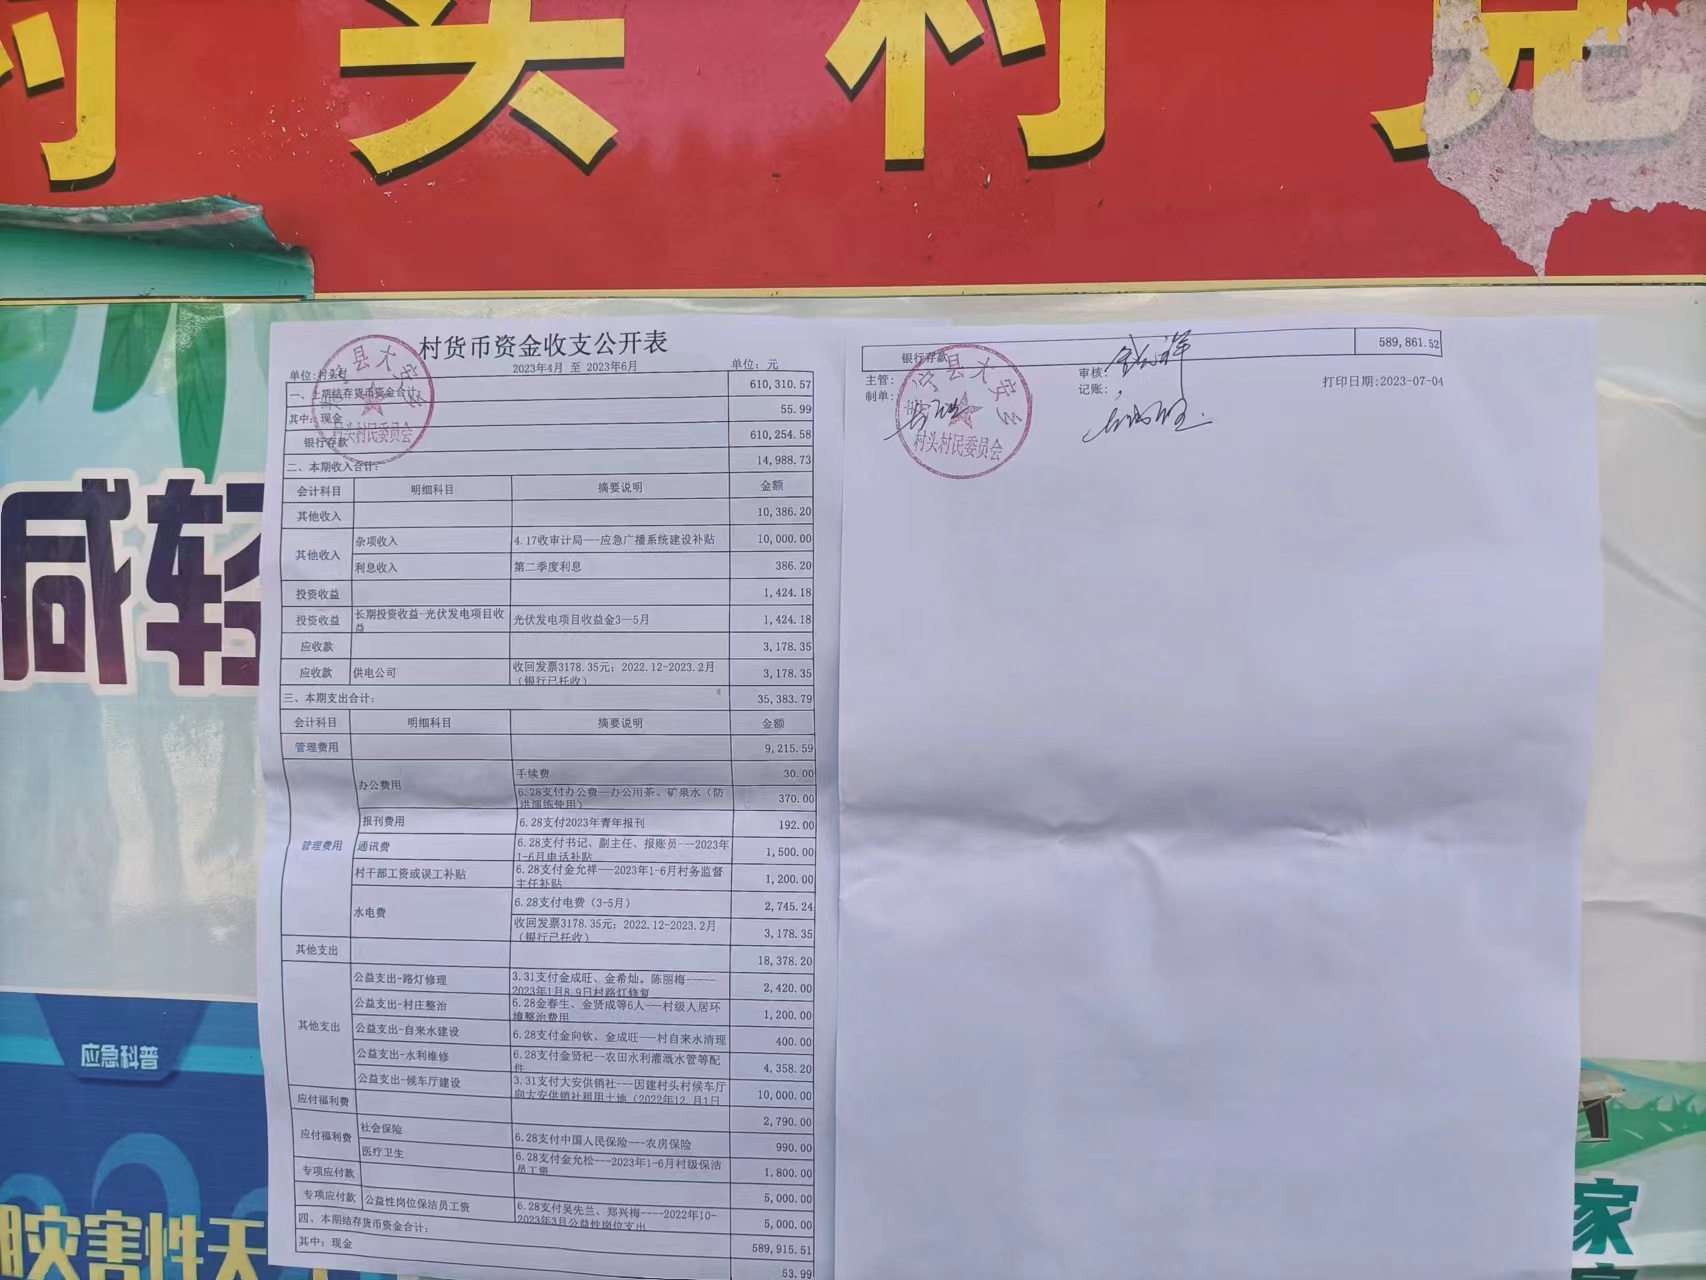 村头村
咸轻
村货币资金收支公开表
2023年4月 至 2023年6月
单位:村头村 单位:元
一、上期结存货币资金合计: 610,310.57
其中:现金 55.99
银行存款 610,254.58
二、本期收入合计: 14,988.73
会计科目 明细科目 摘要说明 金额
其他收入 10,386.20
其他收入 杂项收入 4.17收审计局---应急广播系统建设补贴 10,000.00
利息收入 第二季度利息 386.20
投资收益 1,424.18
投资收益 长期投资收益-光伏发电项目收益 光伏发电项目收益金3—5月 1,424.18
应收款 3,178.35
应收款 供电公司 收回发票3178.35元;2022.12-2023.2月
(银行已托收) 3,178.35
三、本期支出合计: 35,383.79
会计科目 明细科目 摘要说明 金额
管理费用 9,215.59
管理费用 办公费用 手续费 30.00
6.28支付办公费—办公用茶、矿泉水(防
洪演练使用) 370.00
报刊费用 6.28支付2023年青年报刊 192.00
通讯费 6.28支付书记、副主任、报账员---2023年
1-6月电话补贴 1,500.00
村干部工资或误工补贴 6.28支付金允祥---2023年1-6月村务监督
主任补贴 1,200.00
水电费 6.28支付电费(3-5月) 2,745.24
收回发票3178.35元;2022.12-2023.2月
(银行已托收) 3,178.35
其他支出 18,378.20
其他支出 公益支出-路灯修理 3.31支付金成旺、金希灿,陈丽梅-----
2023年1月8.9日村路灯修复 2,420.00
公益支出-村庄整治 6.28金春生、金贤成等6人---村级人居环
境整治费用 1,200.00
公益支出-自来水建设 6.28支付金向钦、金成旺---村自来水清理 400.00
公益支出-水利维修 6.28支付金贤杞--农田水利灌溉水管等配
件 4,358.20
公益支出-候车厅建设 3.31支付大安供销社---因建村头村候车厅
向大安供销社租用土地(2022年12.月1日 10,000.00
应付福利费 2,790.00
应付福利费 社会保险 6.28支付中国人民保险---农房保险 990.00
医疗卫生 6.28支付金允松---2023年1-6月村级保洁
员工资 1,800.00
专项应付款 5,000.00
专项应付款 公益性岗位保洁员工资 6.28支付吴先兰、郑兴梅----2022年10-
2023年3月公益性岗位支出 5,000.00
四、本期结存货币资金合计: 589,915.51
其中:现金 53.99
县大安乡
村头村民委员会
银行存款 589,861.52
主管: 审核:
制单: 记账: 打印日期:2023-07-04
县大安乡
村头村民委员会
应急科普
灾害性天
家